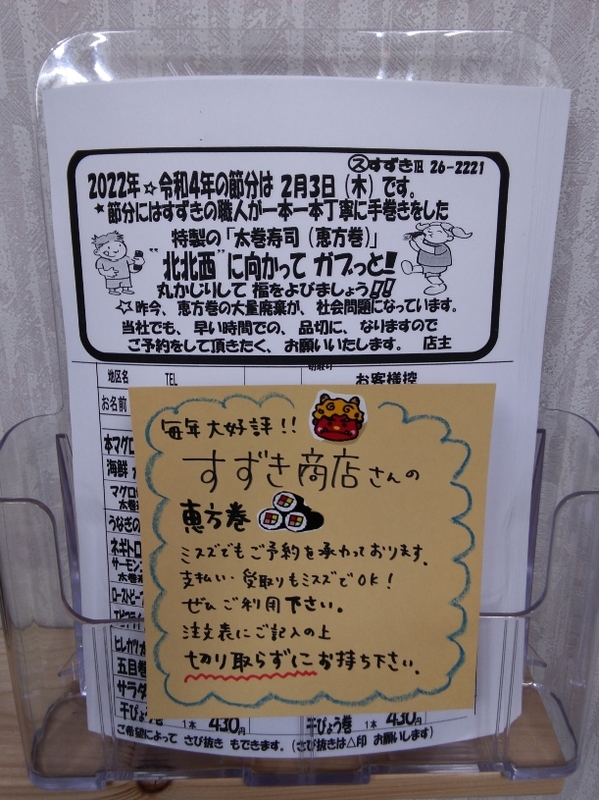 ㋜すずき ℡ 26-2221
2022年☆令和4年の節分は 2月3日（木）です。
★節分にはすずきの職人が一本一本丁寧に手巻きをした
特製の「太巻寿司（恵方巻）」
"北北西"に向かって ガブっと!!
丸かじりして 福をよびましょう!!
☆昨今、恵方巻の大量廃棄が、社会問題になっています。
当社でも、早い時間での、品切に、なりますので
ご予約をして頂きたく、お願いいたします。 店主
地区名 TEL
お客様控
お名前
毎年大好評!!
すずき商店さんの
恵方巻
ミスズでもご予約を承わっております。
支払い・受取りもミスズでOK!
ぜひご利用下さい。
注文表にご記入の上
切り取らずにお持ち下さい。
本マグロ
海鮮
マグロ
太巻
うなぎの
ネギトロ
サーモン
太巻
ローストビーフ
ヒレカツ
五目巻
サラダ
干ぴょう巻 1本 430円 干ぴょう巻 1本 430円
ご希望によって さび抜き もできます。（さび抜きは△印 お願いします）